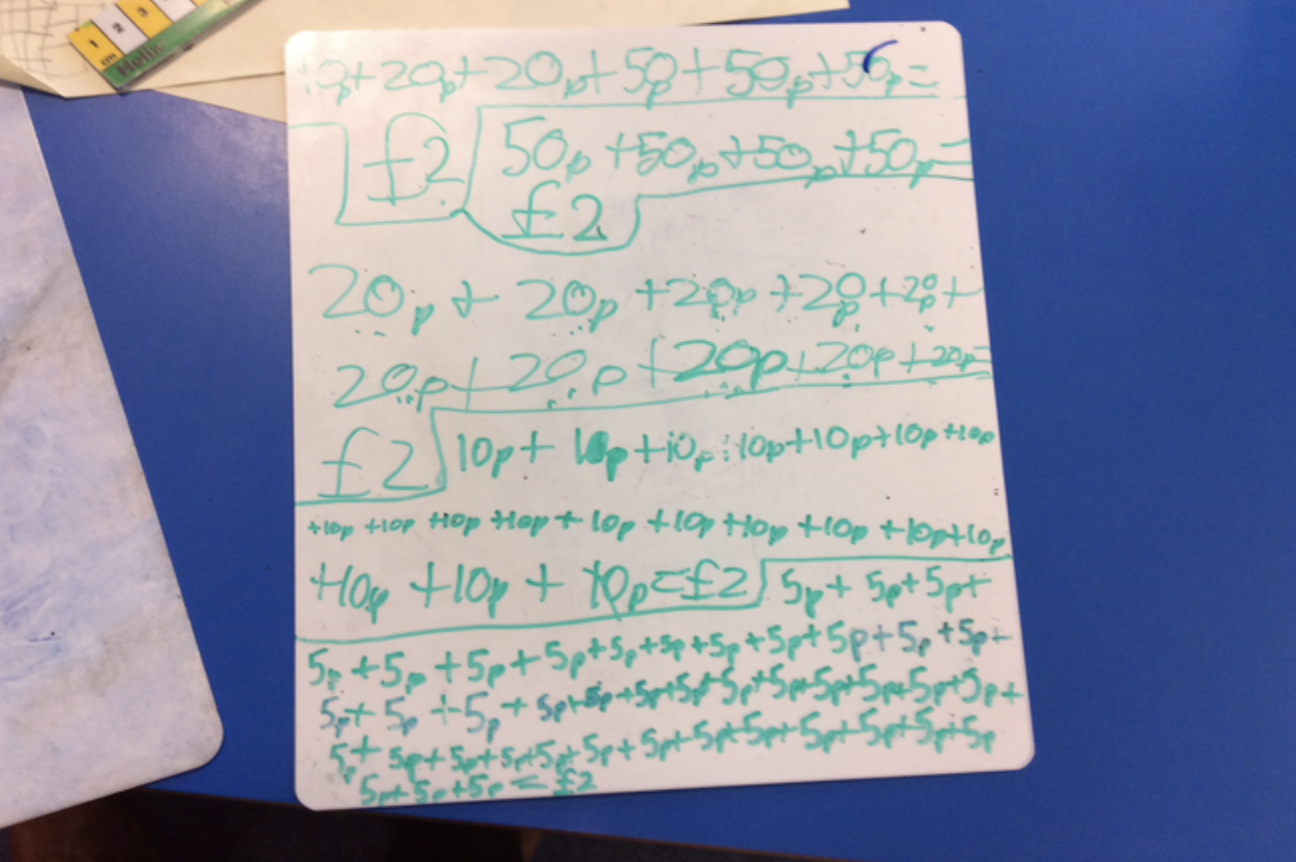 1 2 3
cm
Helix
10p+20p+20p+50p+50p+50p=
£2
50p+50p+50p+50p=
£2
20p+20p+20p+20p+20p+
20p+20p+20p+20p+20p=
£2
10p+10p+10p+10p+10p+10p+10p
+10p+10p+10p+10p+10p+10p+10p+10p+10p+10p
+10p+10p+10p=£2
5p+5p+5p+
5p+5p+5p+5p+5p+5p+5p+5p+5p+5p+5p+
5p+5p+5p+5p+5p+5p+5p+5p+5p+5p+5p+5p+5p+
5p+5p+5p+5p+5p+5p+5p+5p+5p+5p+5p+5p+5p
5p+5p+5p=£2